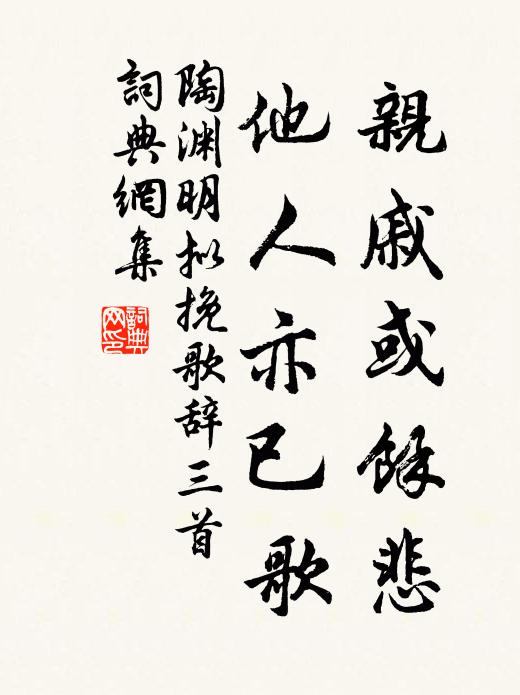 親戚或餘悲
他人亦已歌
陶渊明拟挽歌辞三首
詞典網集
詞典网印